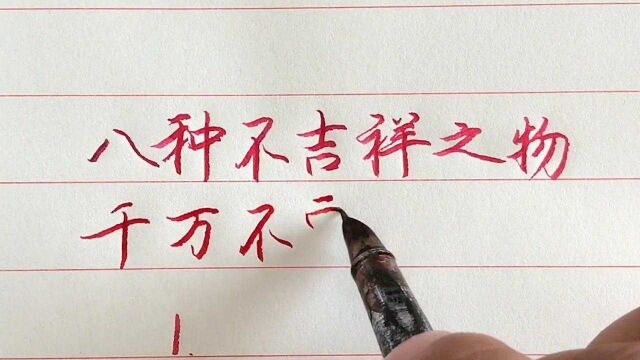 八种不吉祥之物
千万不
1.